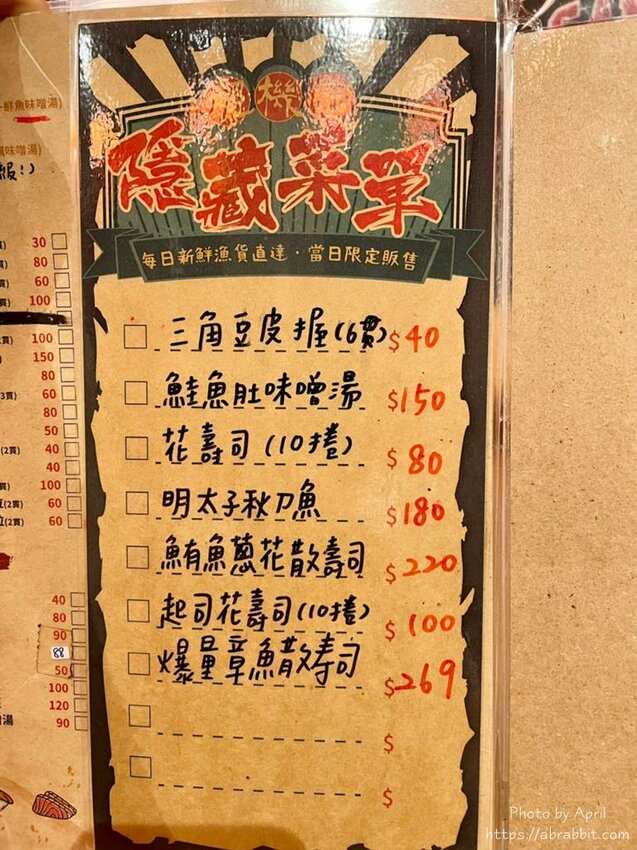 鮮魚味噌湯)
風味噌湯)
30
80
60
100
100
150
80
60
80
50
(2貫) 40
40
100
(2貫) 60
(2貫) 60
40
80
90
88
50
100
120
湯 90
機
隱藏菜單
每日新鮮漁貨直達·當日限定販售
三角豆皮握(6貫) $40
鮭魚肚味噌湯 $150
花壽司(10捲) $80
明太子秋刀魚 $180
鮪魚蔥花散壽司 $220
起司花壽司(10捲) $100
爆量章魚散寿司 $269
$
$
Photo by April
https://abrabbit.com/